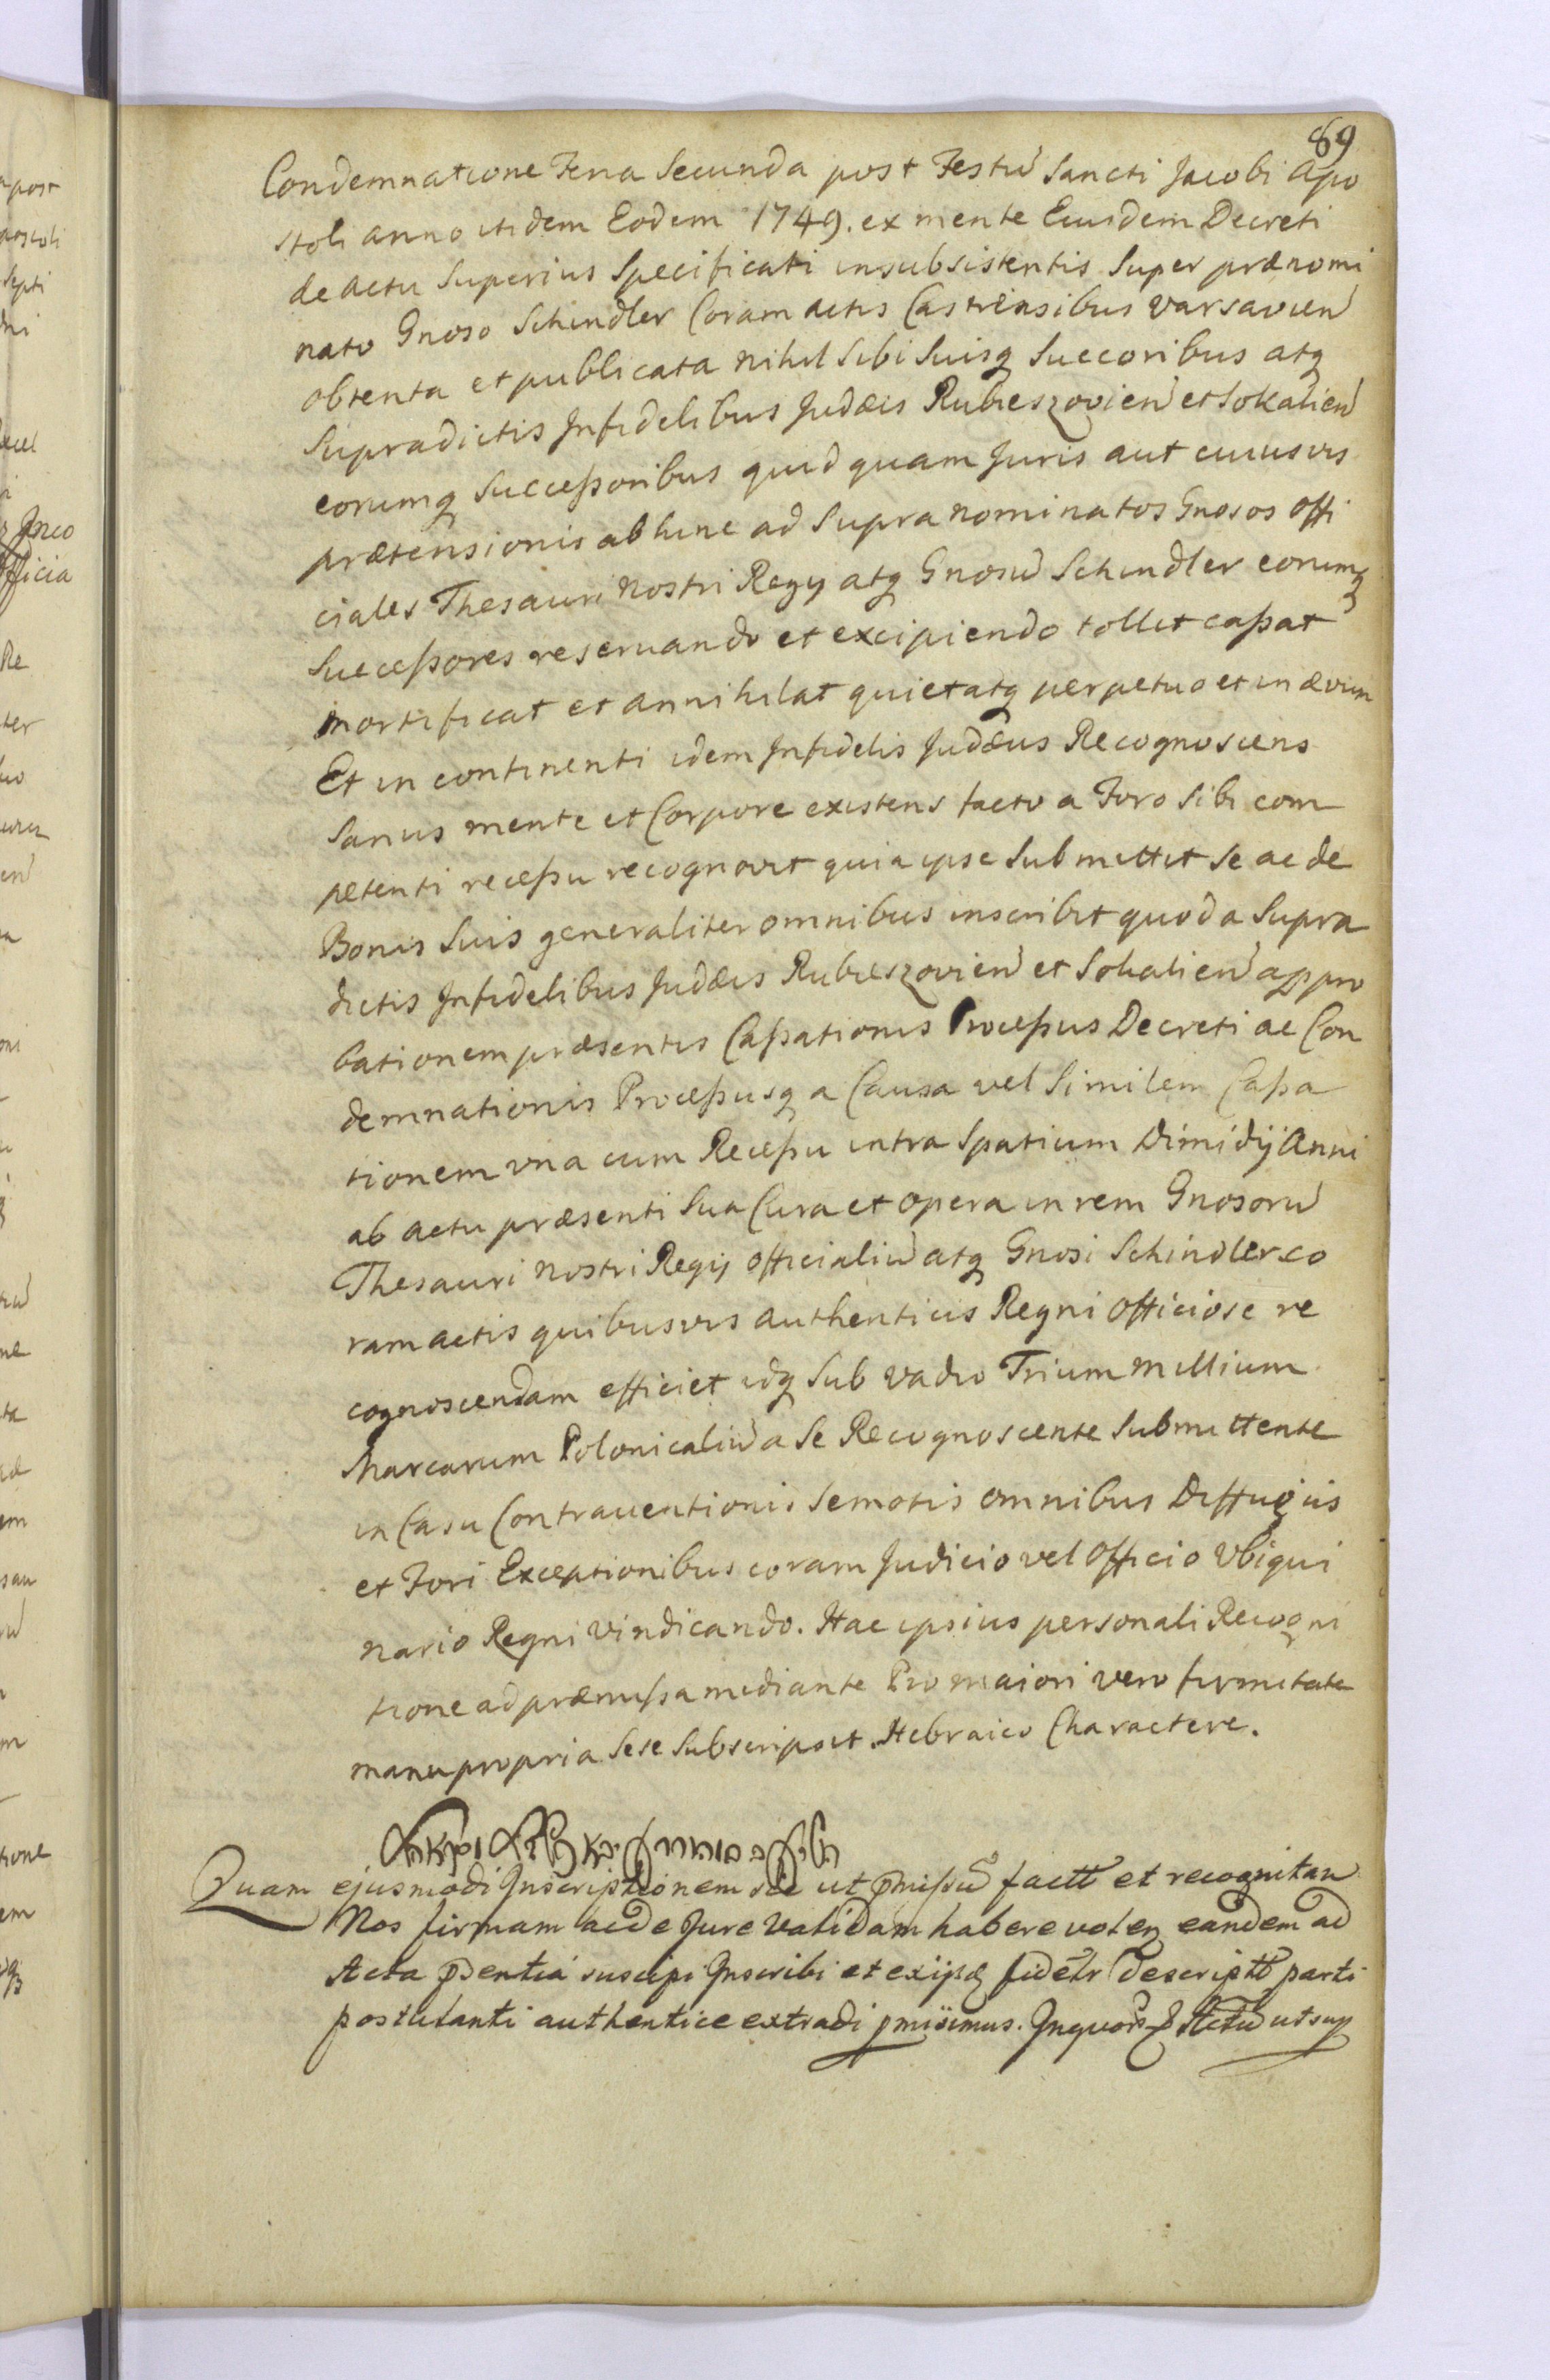 89
Condemnatione Feria Secunda post Festũ Sancti Jacobi Apo
stoli anno itidem Eodem 1749. ex mente Eiusdem Decreti
de actu Superius Specificati insubsistentis Super prænomi
nato Gnoso Schindler Coram actis Castrensibus Varsavien̄
obtenta et publicata nihil Sibi Suisq Succoribus atq
Supradictis Infidelibus Judæis Rubieszovien̄ et Sokalien̄
eorumq Succeßoribus quidquam Juris aut cuiusvis
prætensionis ab hinc ad Supra nominatos Gnosos Offi
ciales Thesauri nostri Regij atq Gnosũ Schindler eorumq
Succeßores reservando et excipiendo tollit caßat
mortificat et annihilat quietatq perpetuo et in ævum
Et in continenti idem Infidelis Judæus Recognoscens
Sanus mente et Corpore existens facto a Foro Sibi com
petenti receßu recognovit quia ipse Submittit Se ac de
Bonis Suis generaliter omnibus inscribit quod a Supra
dictis Infidelibus Judæis Rubieszovien̄ et Sokalien̄ appro
bationem præsentis Caßationis Proceßus Decreti ac Con
demnationis Proceßusq a Causa vel Similem Caßa
tionem una cum Receßu intra Spatium Dimidij Anni
ab actu præsenti Sua Cura et opera in rem Gnosorũ
Thesauri nostri Regij Officialiũ atq Gnosi Schindler co
ram actis quibusvis authenticis Regni Officiose re
cognoscendam efficiet idq Sub vadio Trium Millium
Marcarum Polonicaliũ a Se Recognoscente Submittente
in Casu Contraventionis Semotis omnibus Diffugiis
et Fori Exceptionibus coram Judicio vel Officio Ubiqui
nario Regni vindicando. Hac ipsius personali Recogni
tione ad præmißa mediante Pro maiori vero firmitate
manu propria Sese Subscripsit Hebraico Charactere.
Quam ejusmodi Inscriptionem sic ut pmißũ factt et recognitan
Nos firmam ac de Jure Validam habere volen eandem ad
Acta pdentia suscipi Inscribi et exijsq fidetr descriptt parti
postulanti authentice extradi pmisimus. Actũ ut sup